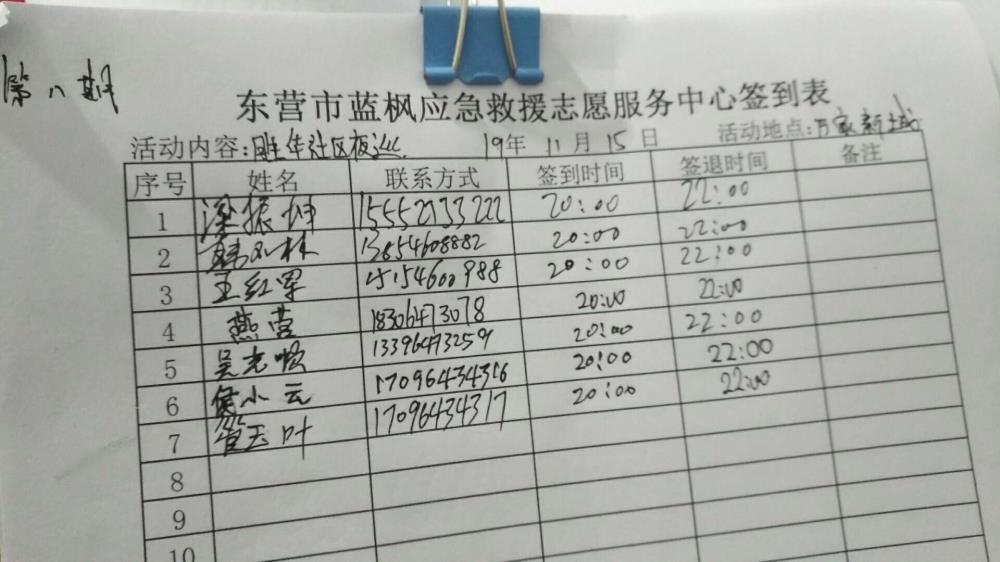 第八期
东营市蓝枫应急救援志愿服务中心签到表
活动内容:胜华社区夜巡 19年 11月 15日 活动地点:万家新城
序号 姓名 联系方式 签到时间 签退时间 备注
1 梁振坤 15552133222 20:00 22:00
2 13654608882 20:00 22:00
3 王红军 15154600988 20:00 22:00
4 燕营 18306473078 20:00 22:00
5 吴志顺 13396473259 20:00 22:00
6 侯小云 17096434316 20:00 22:00
7 管玉叶 17096434317 20:00 22:00
8
9
10